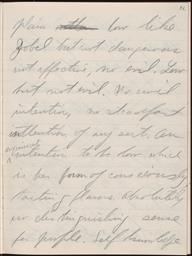 plain low like
but not dangerous
not offective, no evil. Low
but not evil. No evil
intention, no steadfast
intention of any sort. An
intention to be low which
is her form of consciously
tasting flavors. Absolutely
no distinguishing sense
for people. Self knowledge